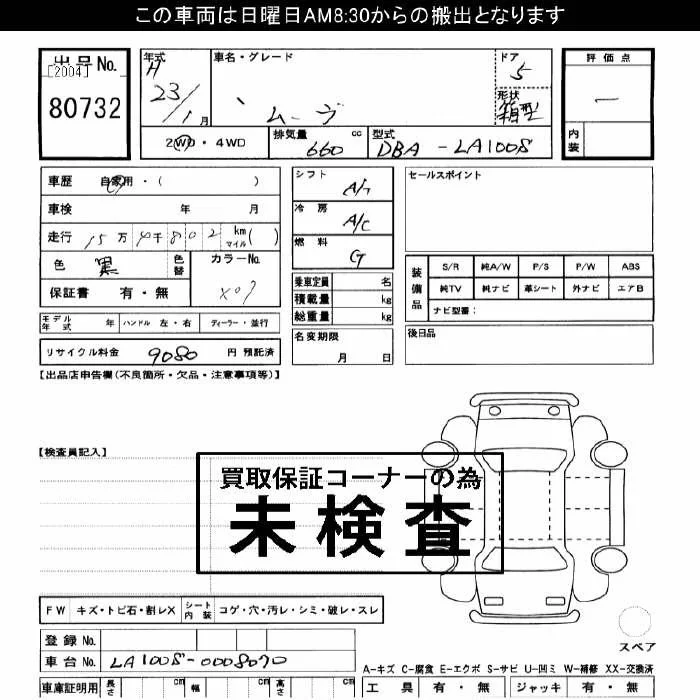 この車両は日曜日AM8:30からの搬出となります
出品No.
[2004]
80732
年式
H
23/1月
車名・グレード
ムーヴ
ドア
5
形状
箱型
評価点
内装
2WD・4WD
排気量 660 cc
型式 DBA-LA100S
車歴 自家用・( )
車検 年 月
走行 15万 4千 802 km マイル( )
色 黒
色替
カラーNo.
X07
保証書 有・無
シフト
A/T
冷房
A/C
燃料
G
乗車定員 名
積載量 kg
総重量 kg
名変期限
月 日
セールスポイント
装備品
S/R 純A/W P/S P/W ABS
純TV 純ナビ 革シート 外ナビ エアB
ナビ型番:
後日品
モデル年式 年 ハンドル 左・右 ディーラー・並行
リサイクル料金 9080 円 預託済
【出品店申告欄(不良箇所・欠品・注意事項等)】
【検査員記入】
買取保証コーナーの為
未検査
FW キズ・トビ石・割レX シート内装 コゲ・穴・汚レ・シミ・破レ・スレ
登録No.
車台No. LA100S-0008070
スペア
A-キズ C-腐食 E-エクボ S-サビ U-凹ミ W-補修 XX-交換済
車庫証明用 長さ cm 幅 cm 高さ cm
工具 有・無 ジャッキ 有・無